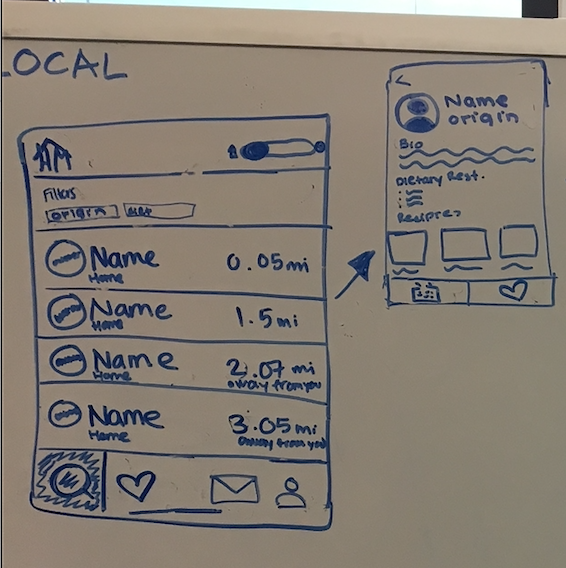 LOCAL
Filters
origin
Name
Home
0.05mi
Name
Home
1.5mi
Name
Home
2.07 mi
away from you
Name
Home
3.05mi
away from you
Name
origin
Bio
Dietary Rest.
Recipes